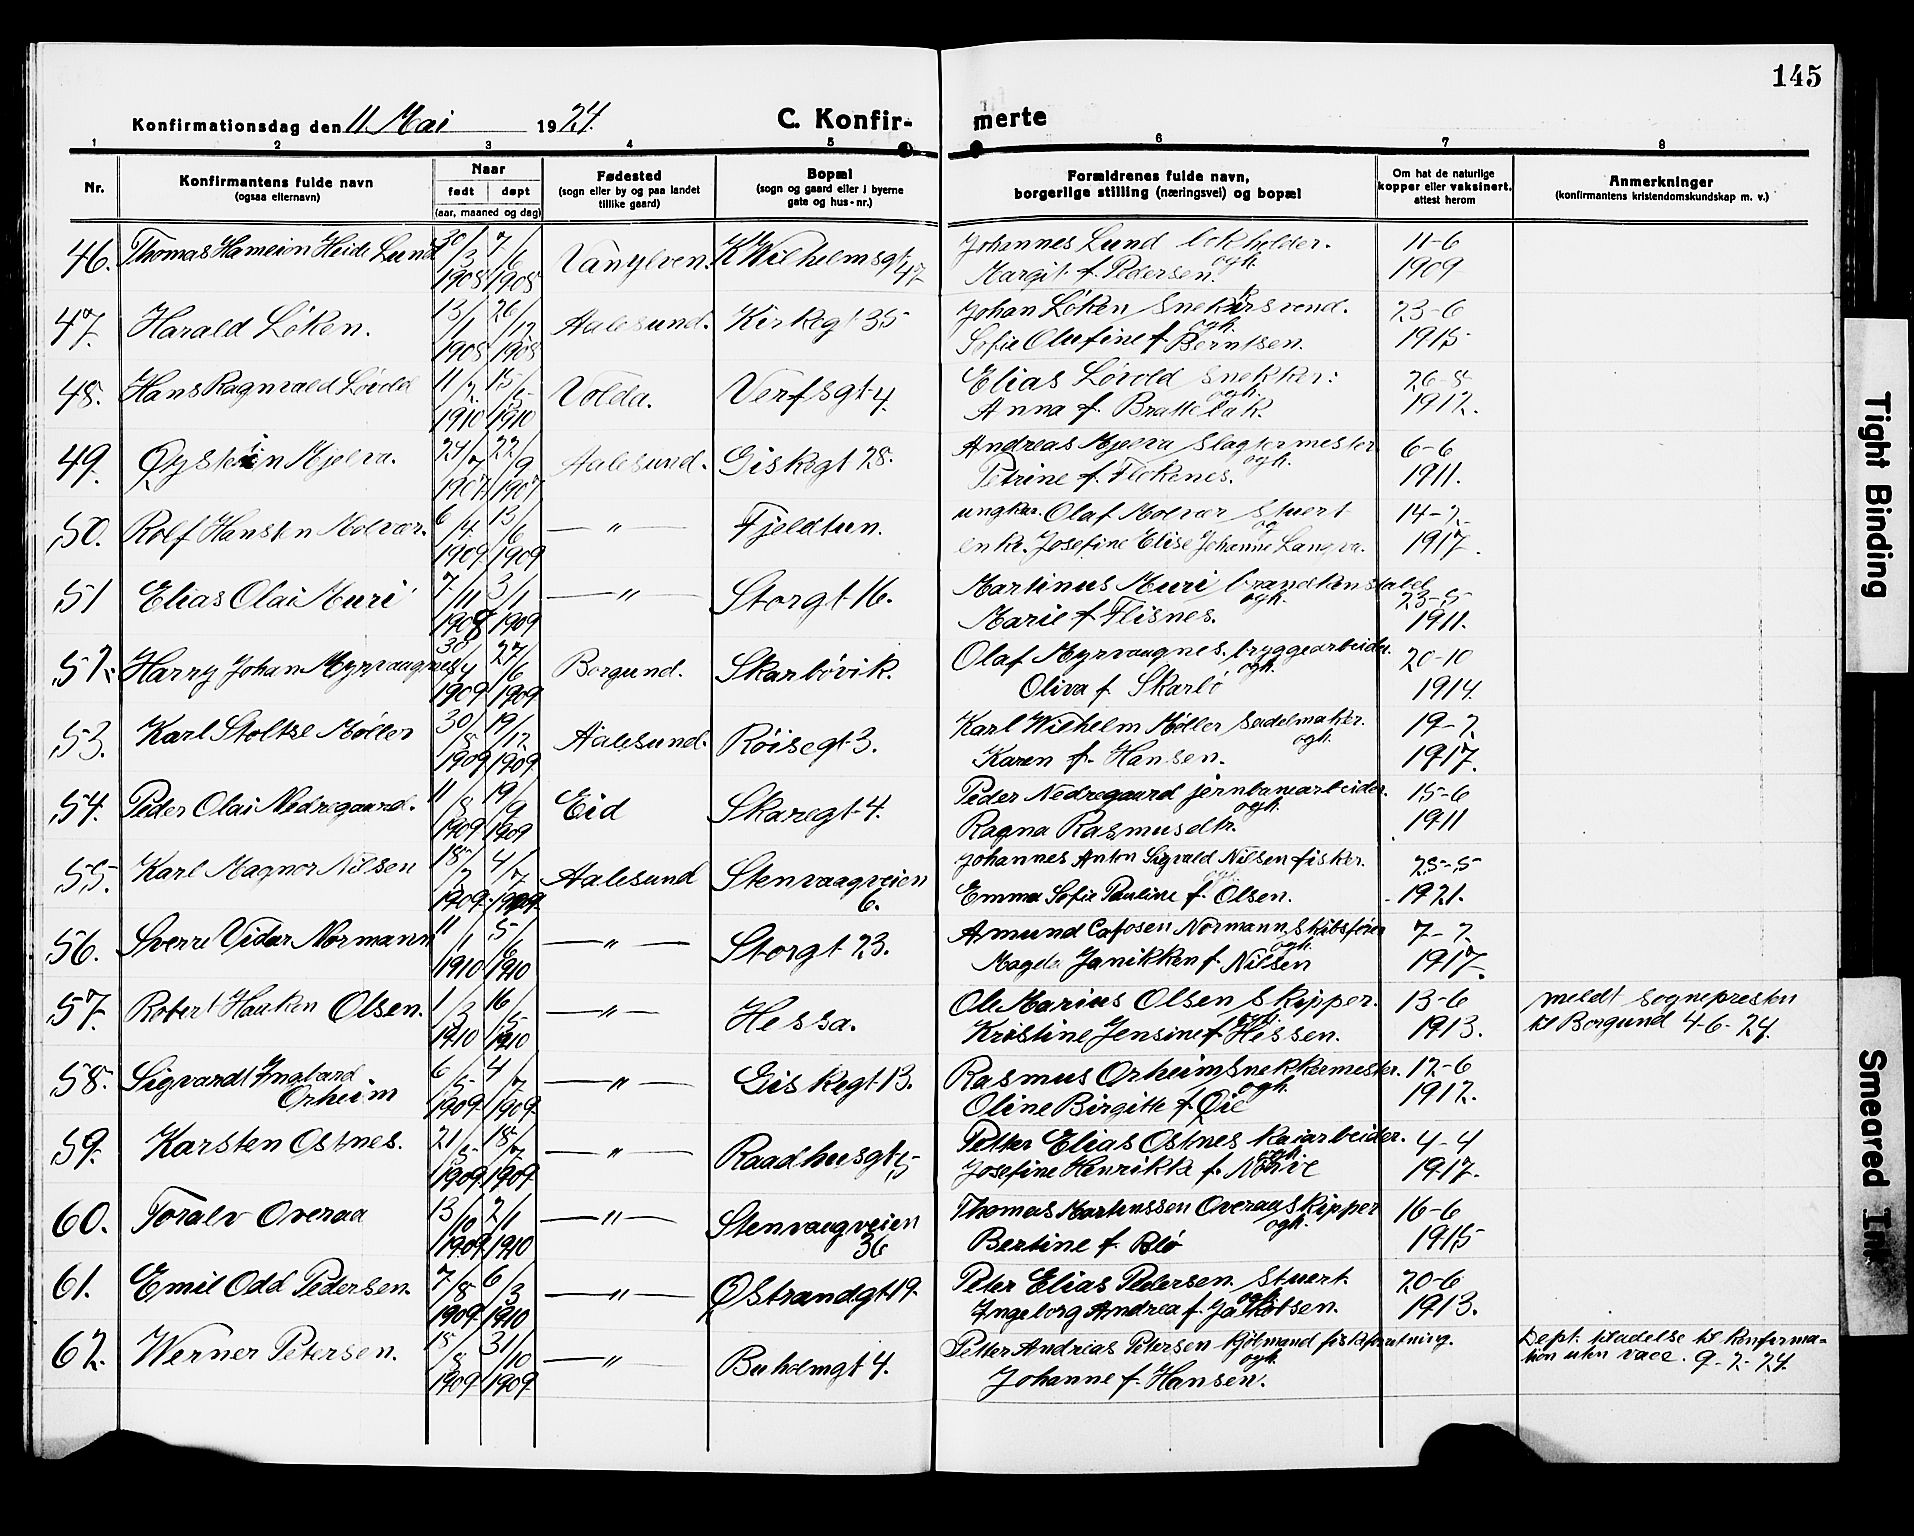 145
Konfirmationsdag den 11. Mai 1924.
C. Konfir- merte
1 2 3 4 5 6 7 8
Nr.
Konfirmantens fulde navn
(ogsaa efternavn)
Naar
født døpt
(aar, maaned og dag)
Fødested
(sogn eller by og paa landet
tillike gaard)
Bopæl
(sogn og gaard eller i byerne
gate og hus-nr.)
Forældrenes fulde navn,
borgerlige stilling (næringsvei) og bopæl
Om hat de naturlige
kopper eller vaksinert,
attest herom
Anmerkninger
(konfirmantens kristendomskundskap m. v.)
46. Thomas Heide Lund 30/3 7/6 Vanylven. K Wilhelmsgt 47 Johannes Lund bokholder. 11-6
1908 1908 ogh. Margit f. Pedersen. 1909
47. Harald Løken. 13/1 26/12 Aalesund. Kirkegt 35 Johan Løken Snekkersvend. 23-6
1908 1908 ogh. Sofie Olufine f. Berntsen. 1915
48. Hans Ragnvald Løvold 11/2 15/5 Volda. Verfsgt 4. Elias Løvold Snekker. 26-8
1910 1910 ogh. Anna f. Brattebak. 1912.
49. Øystein Mjelva. 24/7 22/9 Aalesund. Giskegt 28. Andreas Mjelva Slagtermester 6-6
1907 1907 ogh. Petrine f. Flokenes. 1911.
50. Rolf Hansten Molvær. 6/4 13/6 — " — Fjeldtun. ungkar. Olaf Molvær Stuert 14-2
1909 1909 og enke. Josefine Elise Johanne Langva. 1917.
51 Elias Olai Muri 7/11 3/1 — " — Storgt 16. Martinus Muri brandkonstabel 23-5
1908 1909 ogh. Marie f. Flisnes. 1911.
52. Harry Johan Myrvaagnes 30/4 27/6 Borgund. Skarbövik. Olaf Myrvaagnes. bryggearbeider. 20-10
1909 1909 ogh. Oliva f. Skarbö 1914
53. Karl Stoltze Møller 30/8 19/12 Aalesund. Röisegt 3. Karl Wilhelm Møller Sadelmaker. 19-2
1909 1909 ogh. Karen f. Hansen. 1917.
54. Peder Olai Nedregaard. 11/8 19/9 Eid Skaregt 4. Peder Nedregaard jernbanearbeider. 15-6
1909 1909 ogh. Ragna Rasmusdtr. 1911
55. Karl Magnor Nilsen 18/2 4/7 Aalesund Stenvaagveien 6. Johannes Anton Sigvald Nilsen fisker. 25-5
1909 1909 ogh. Emma Sofie Pauline f. Olsen. 1921.
56. Sverre Vidar Normann 11/1 5/6 — " — Storgt 23. Amund Normann, Skibsfører 7-2
1910 1910 ogh. Magda Janikken f. Nilsen 1917.
57. Robert Hauken Olsen. 1/3 16/5 — " — Hessa. Ole Marius Olsen Skipper. 13-6 meldt sognepresten
1910 1910 ogh. Kristine Jensine f. Hessen. 1913. til Borgund 4-6-24.
58. Sigvardt Ingvard Orheim 6/5 4/7 — " — Giskegt 13. Rasmus Orheim Snekkermester. 12-6
1909 1909 ogh. Oline Birgitte f. Øie 1912.
59. Karsten Ostnes. 21/5 18/7 — " — Raadhusgt 5 Petter Elias Ostnes kaiarbeider. 4-4
1909 1909 ogh. Josefine Henrikka f. 1917.
60. Toralv Overaa 13/10 2/1 — " — Stenvaagveien 36 Thomas Martinussen Overaa Skipper 16-6
1909 1910 ogh. Bertine f. Blö 1915
61. Emil Odd Pedersen. 7/8 6/3 — " — Østrandgt 19. Peter Elias Pedersen. Stuert. 20-6
1909 1910 ogh. Ingeborg Andrea f. Jakobsen. 1913.
62. Werner Petersen. 15/8 31/10 — " Buholmgt 4. Petter Andreas Petersen kjöbmand fiskforretning. Dept. tiladelse til konfirma-
1909 1909 ogh. Johanne f. Hansen. tion uten vacc. 9-2-24.
Tight Binding
Smeared Ink